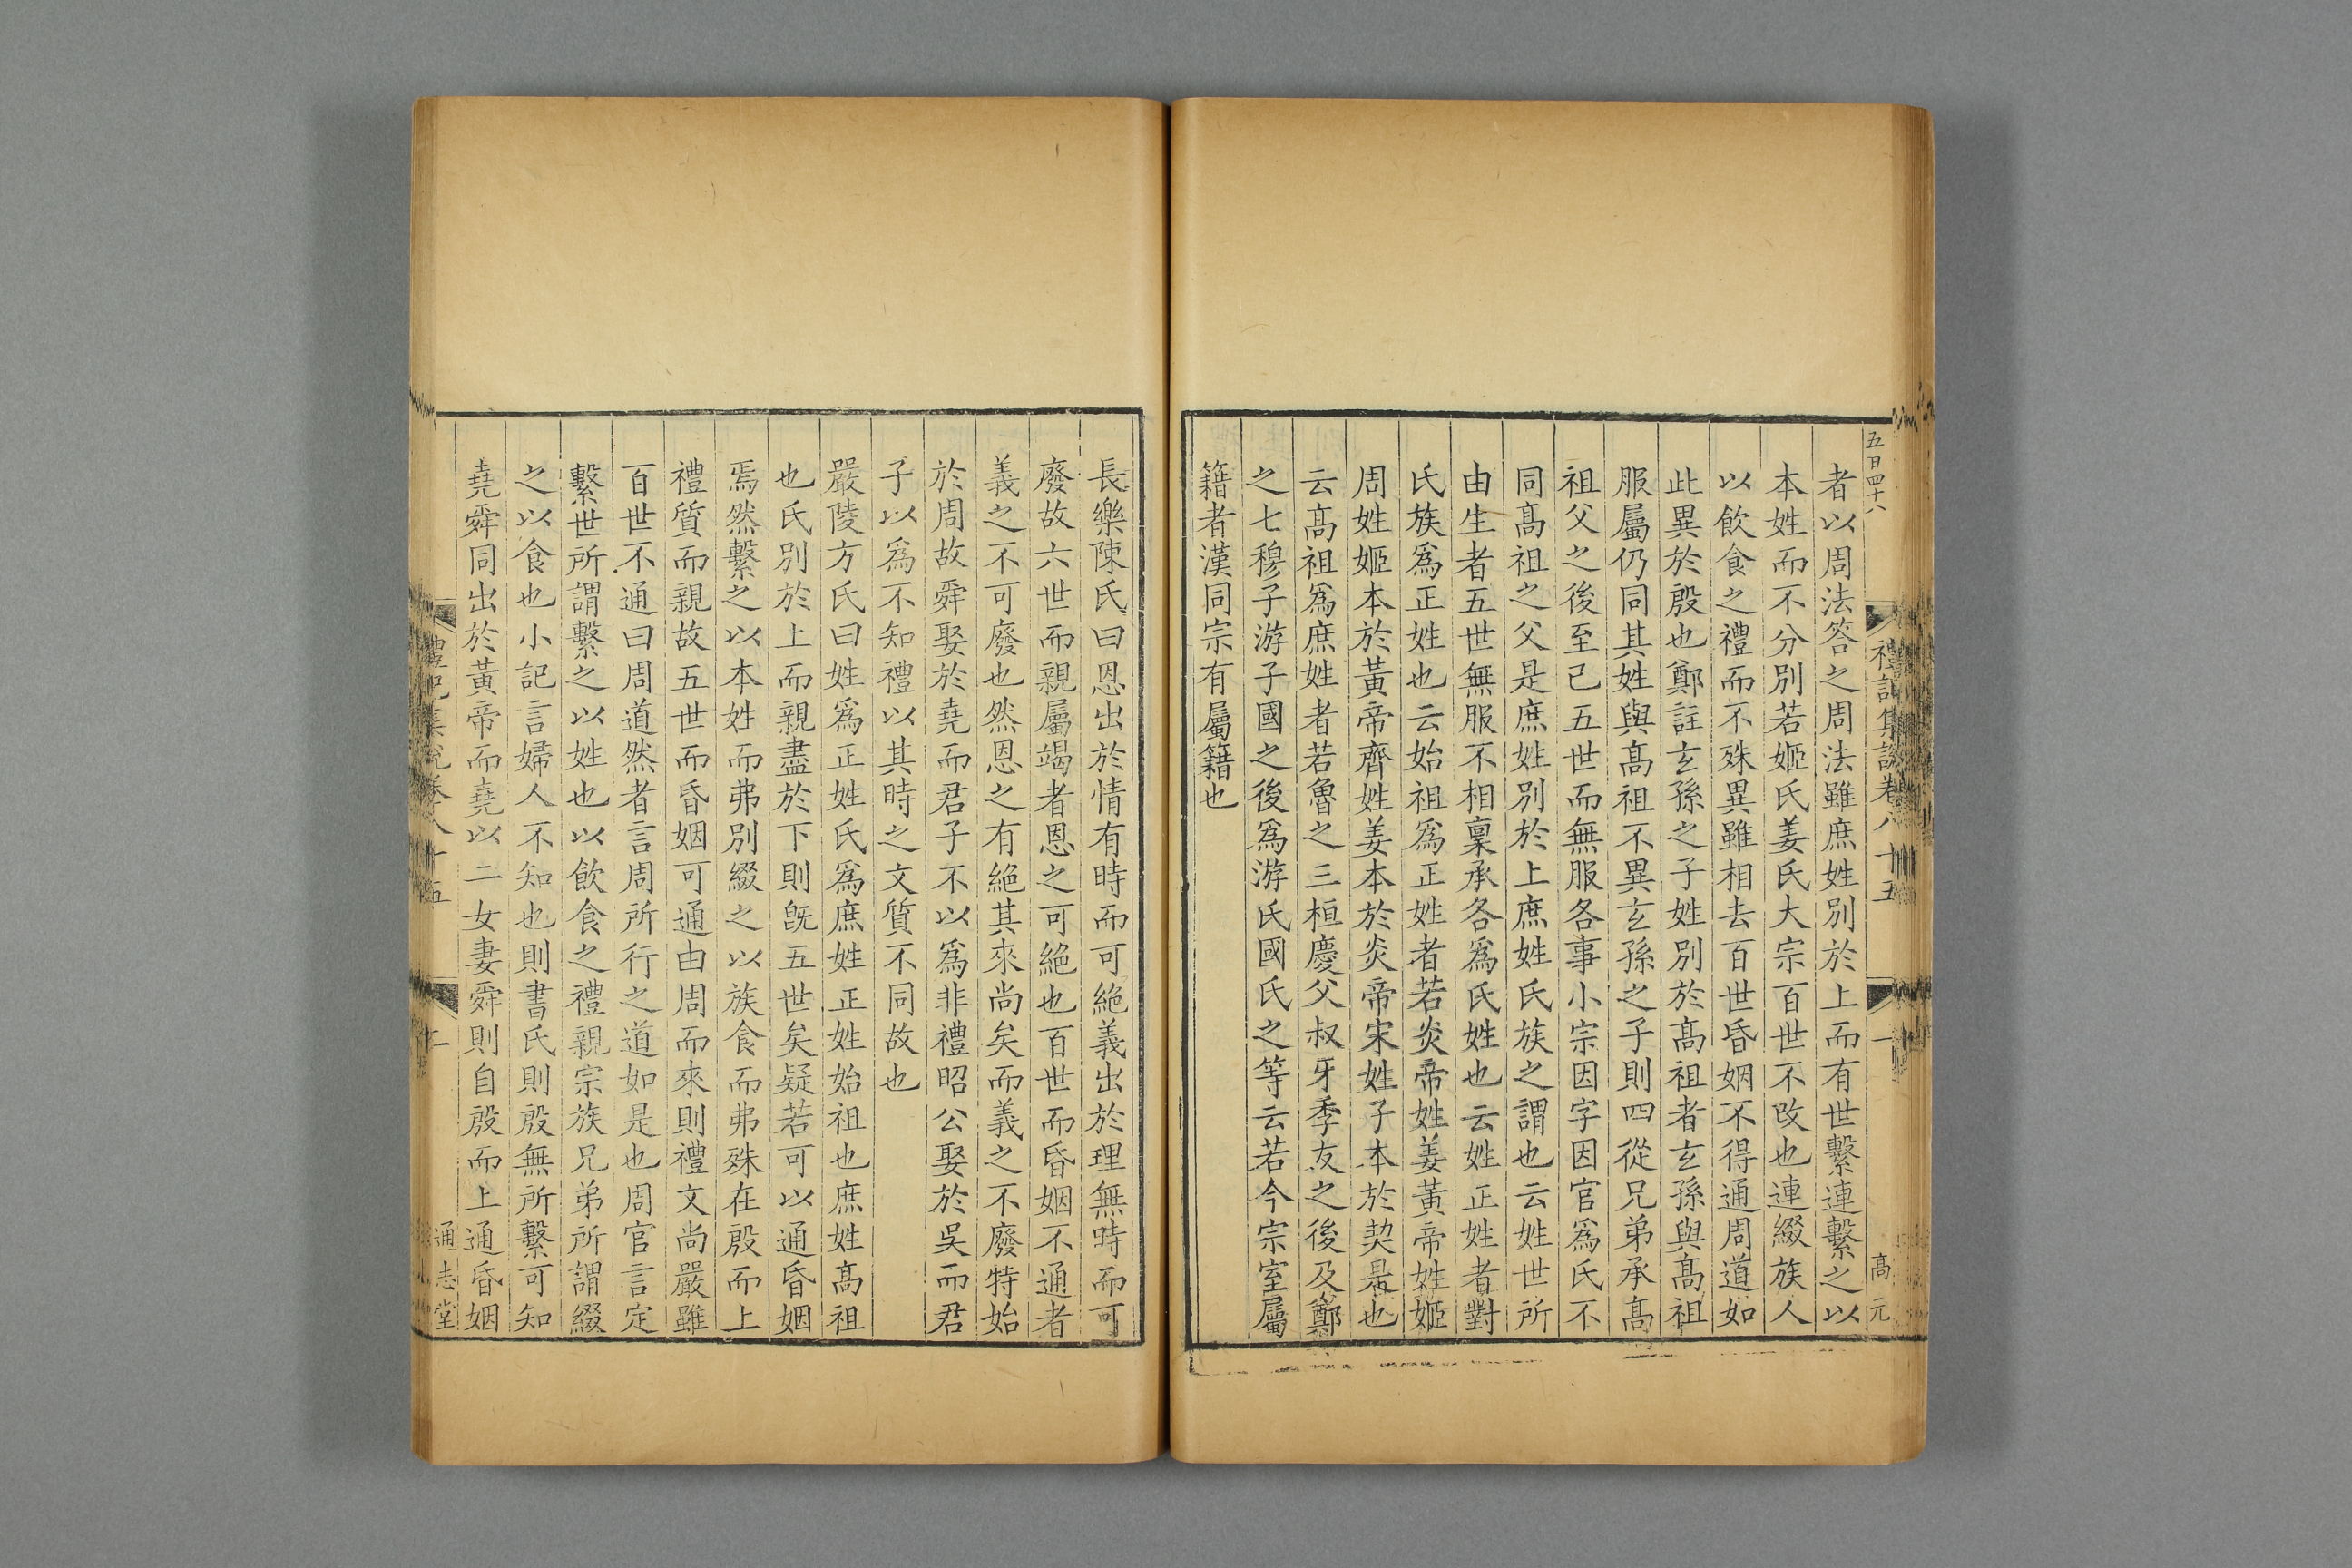 五百四十八
禮記集說卷八十五
一
高元
者以周法答之周法雖庶姓別於上而有世繫連繫之以
本姓而不分別若姬氏姜氏大宗百世不改也連綴族人
以飲食之禮而不殊異雖相去百世昏姻不得通周道如
此異於殷也鄭註玄孫之子姓別於髙祖者玄孫與髙祖
服屬仍同其姓與髙祖不異玄孫之子則四從兄弟承髙
祖父之後至己五世而無服各事小宗因字因官爲氏不
同髙祖之父是庶姓別於上庶姓氏族之謂也云姓世所
由生者五世無服不相稟承各爲氏姓也云姓正姓者對
氏族爲正姓也云始祖爲正姓者若炎帝姓姜黃帝姓姬
周姓姬本於黃帝齊姓姜本於炎帝宋姓子本於契是也
云髙祖爲庶姓者若魯之三桓慶父叔牙季友之後及鄭
之七穆子游子國之後爲游氏國氏之等云若今宗室屬
籍者漢同宗有屬籍也
長樂陳氏曰恩出於情有時而可絕義出於理無時而可
廢故六世而親屬竭者恩之可絕也百世而昏姻不通者
義之不可廢也然恩之有絕其來尚矣而義之不廢特始
於周故舜娶於堯而君子不以爲非禮昭公娶於吳而君
子以爲不知禮以其時之文質不同故也
嚴陵方氏曰姓爲正姓氏爲庶姓正姓始祖也庶姓髙祖
也氏別於上而親盡於下則旣五世矣疑若可以通昏姻
焉然繫之以本姓而弗別綴之以族食而弗殊在殷而上
禮質而親故五世而昏姻可通由周而來則禮文尚嚴雖
百世不通曰周道然者言周所行之道如是也周官言定
繫世所謂繫之以姓也以飲食之禮親宗族兄弟所謂綴
之以食也小記言婦人不知也則書氏則殷無所繫可知
堯舜同出於黃帝而堯以二女妻舜則自殷而上通昏姻
禮記集說卷八十五
二
通志堂